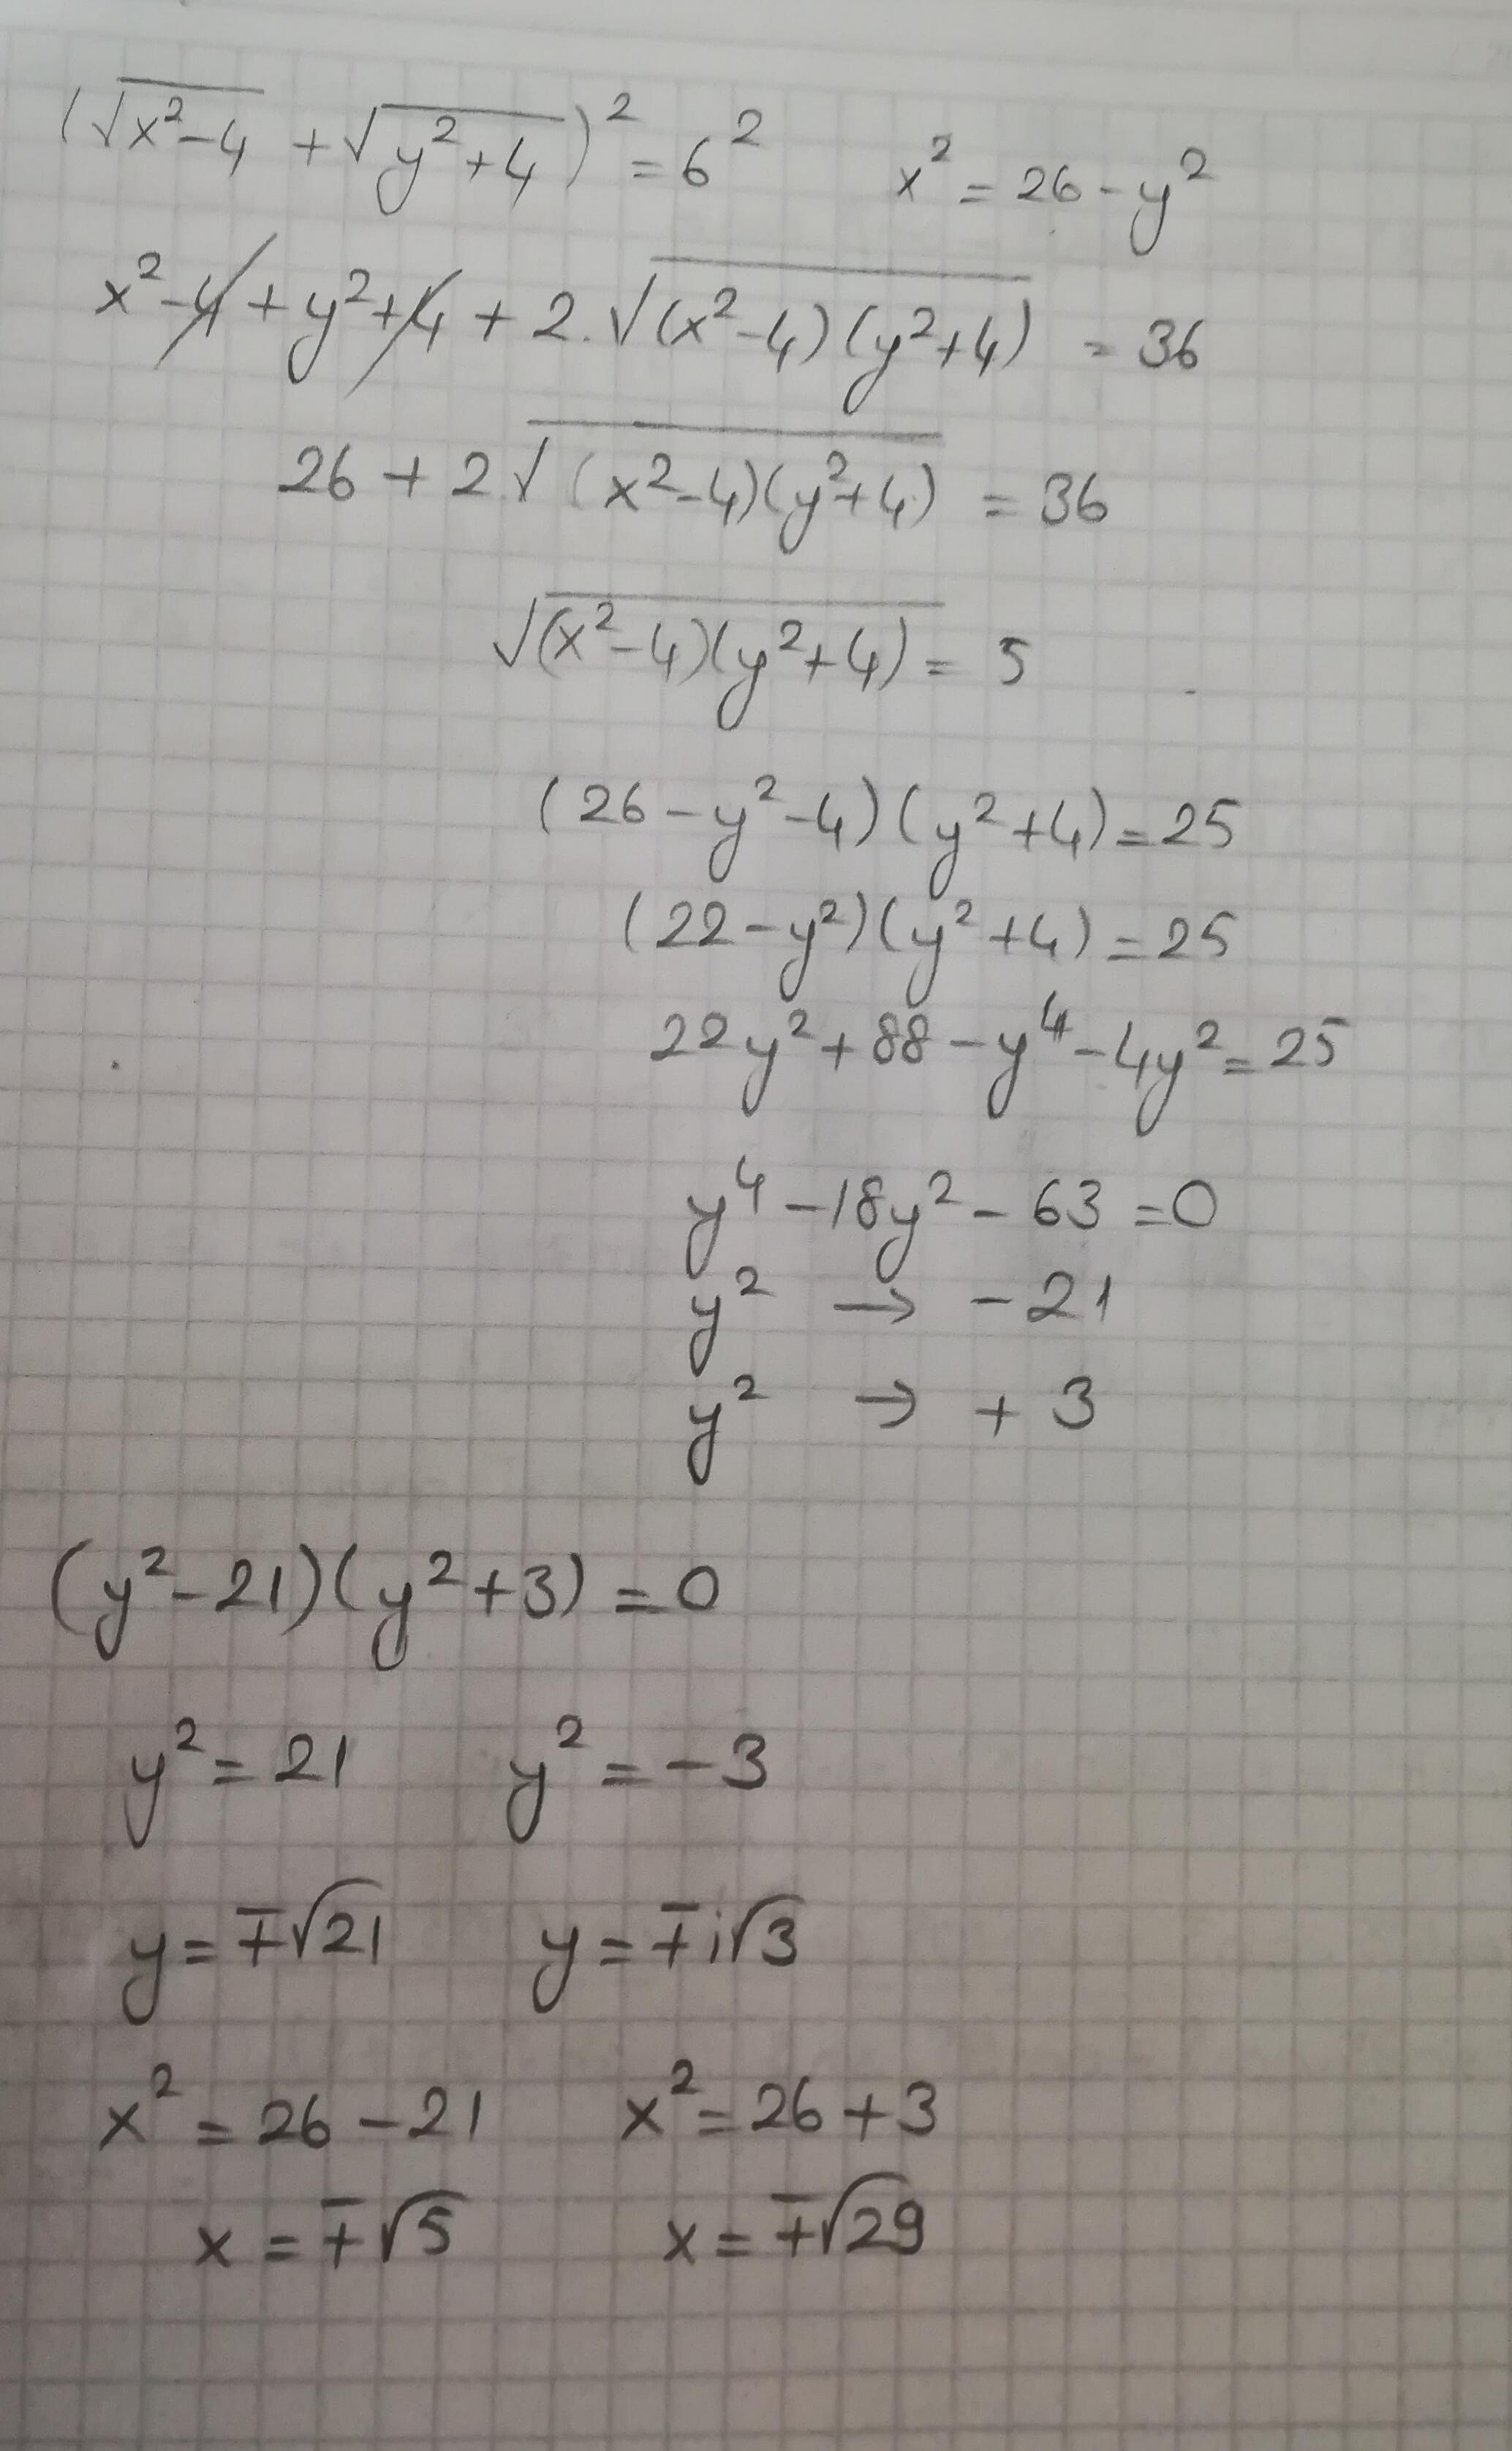 (√x²-4 + √y²+4)² = 6² x² = 26 - y²
x² - 4 + y² + 4 + 2.√(x²-4)(y²+4) = 36
26 + 2.√(x²-4)(y²+4) = 36
√(x²-4)(y²+4) = 5
(26 - y² - 4)(y² + 4) = 25
(22 - y²)(y² + 4) = 25
22y² + 88 - y⁴ - 4y² = 25
y⁴ - 18y² - 63 = 0
y² → - 21
y² → + 3
(y² - 21)(y² + 3) = 0
y² = 21 y² = -3
y = ∓√21 y = ∓i√3
x² = 26 - 21 x² = 26 + 3
x = ∓√5 x = ∓√29